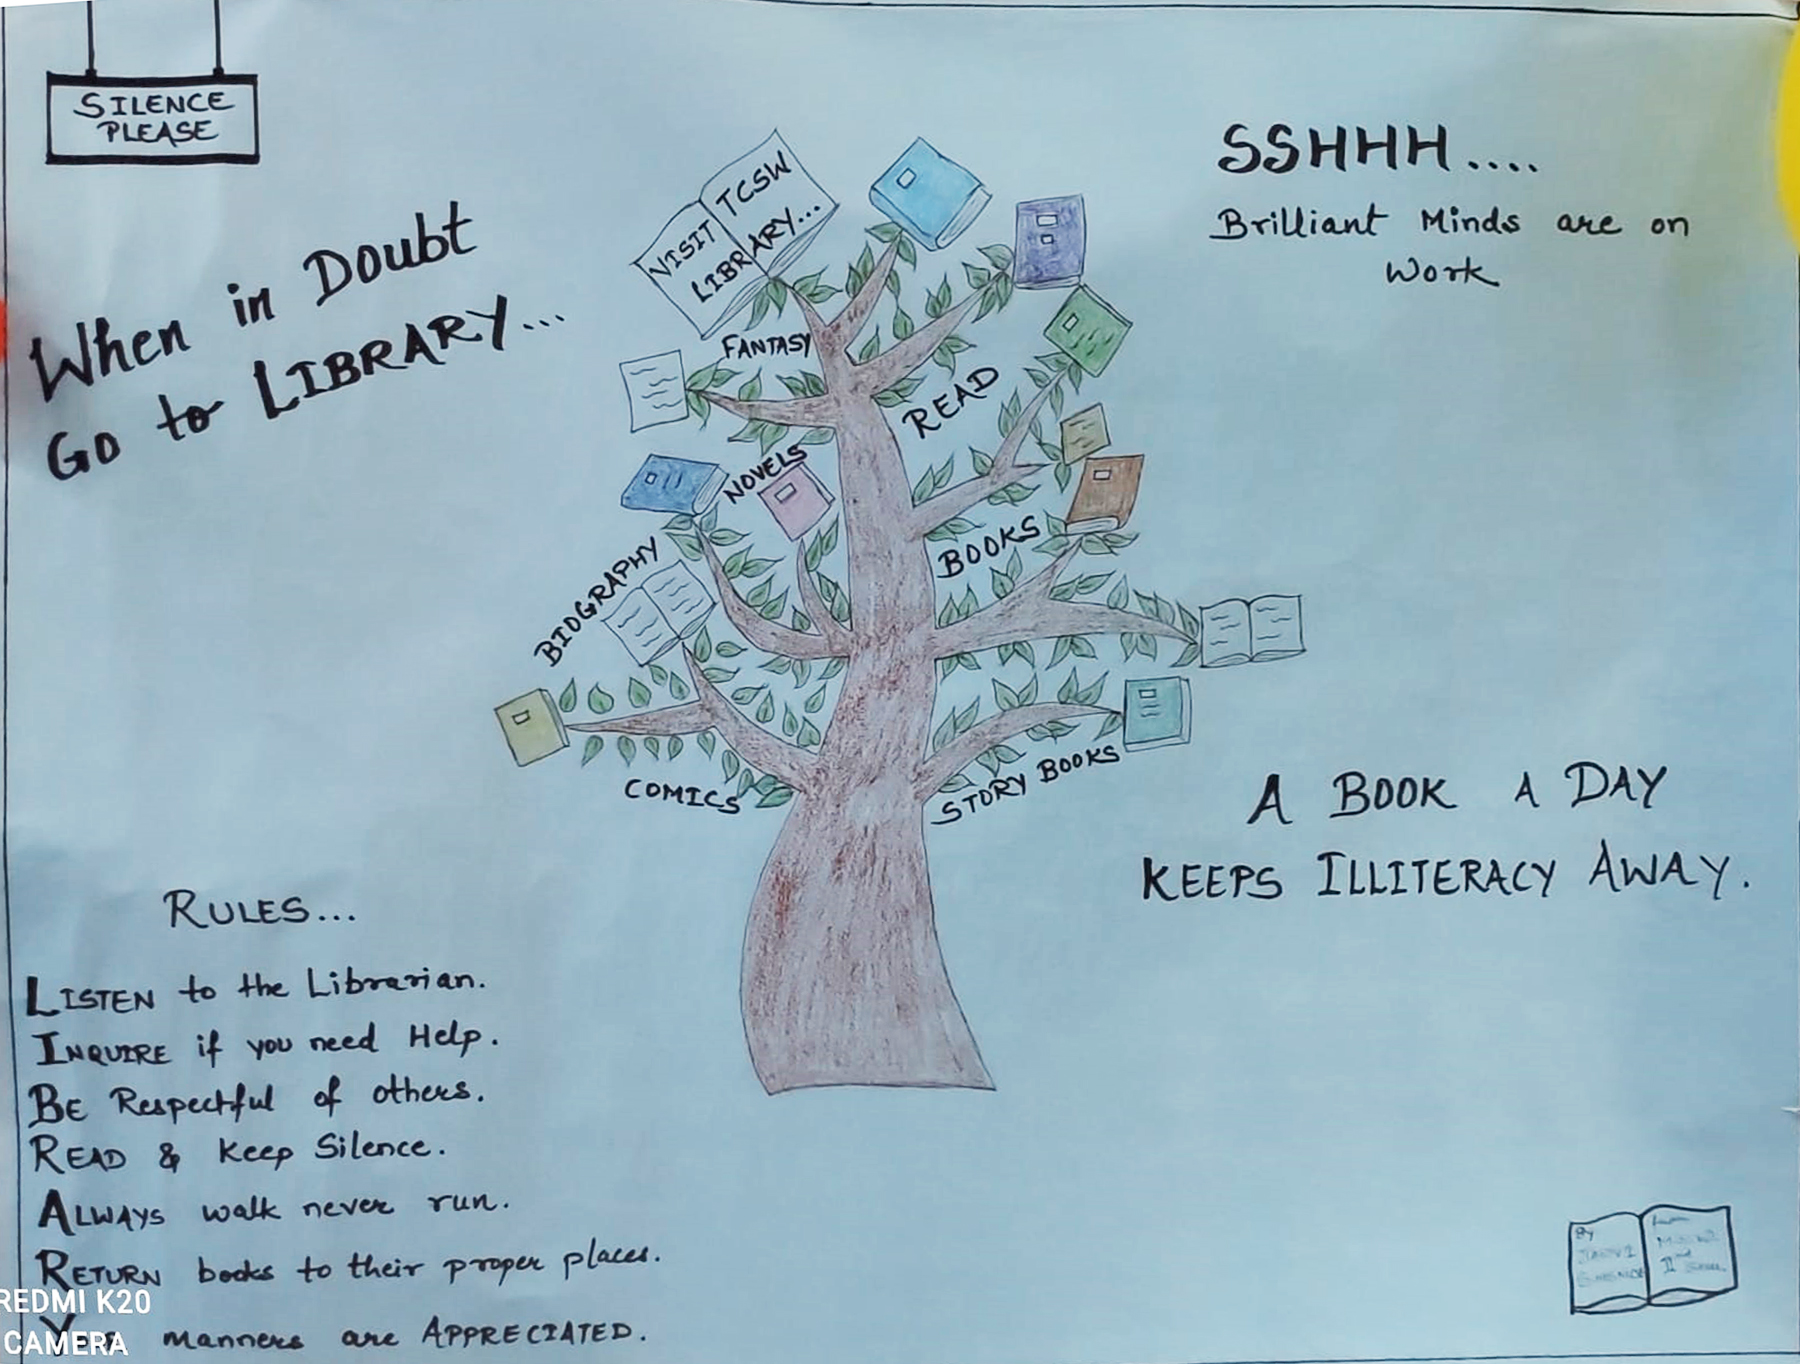 SILENCE
PLEASE
When in Doubt
Go to LIBRARY...
VISIT TCSW
LIBRARY...
SSHHH....
Brilliant Minds are on
Work
FANTASY
READ
NOVELS
BOOKS
BIOGRAPHY
COMICS
STORY BOOKS
A BOOK A DAY
KEEPS ILLITERACY AWAY.
RULES...
LISTEN to the Librarian.
INQUIRE if you need Help.
BE Respectful of others.
READ & Keep Silence.
ALWAYS walk never run.
RETURN books to their proper places.
manners are APPRECIATED.
REDMI K20
CAMERA
By
II